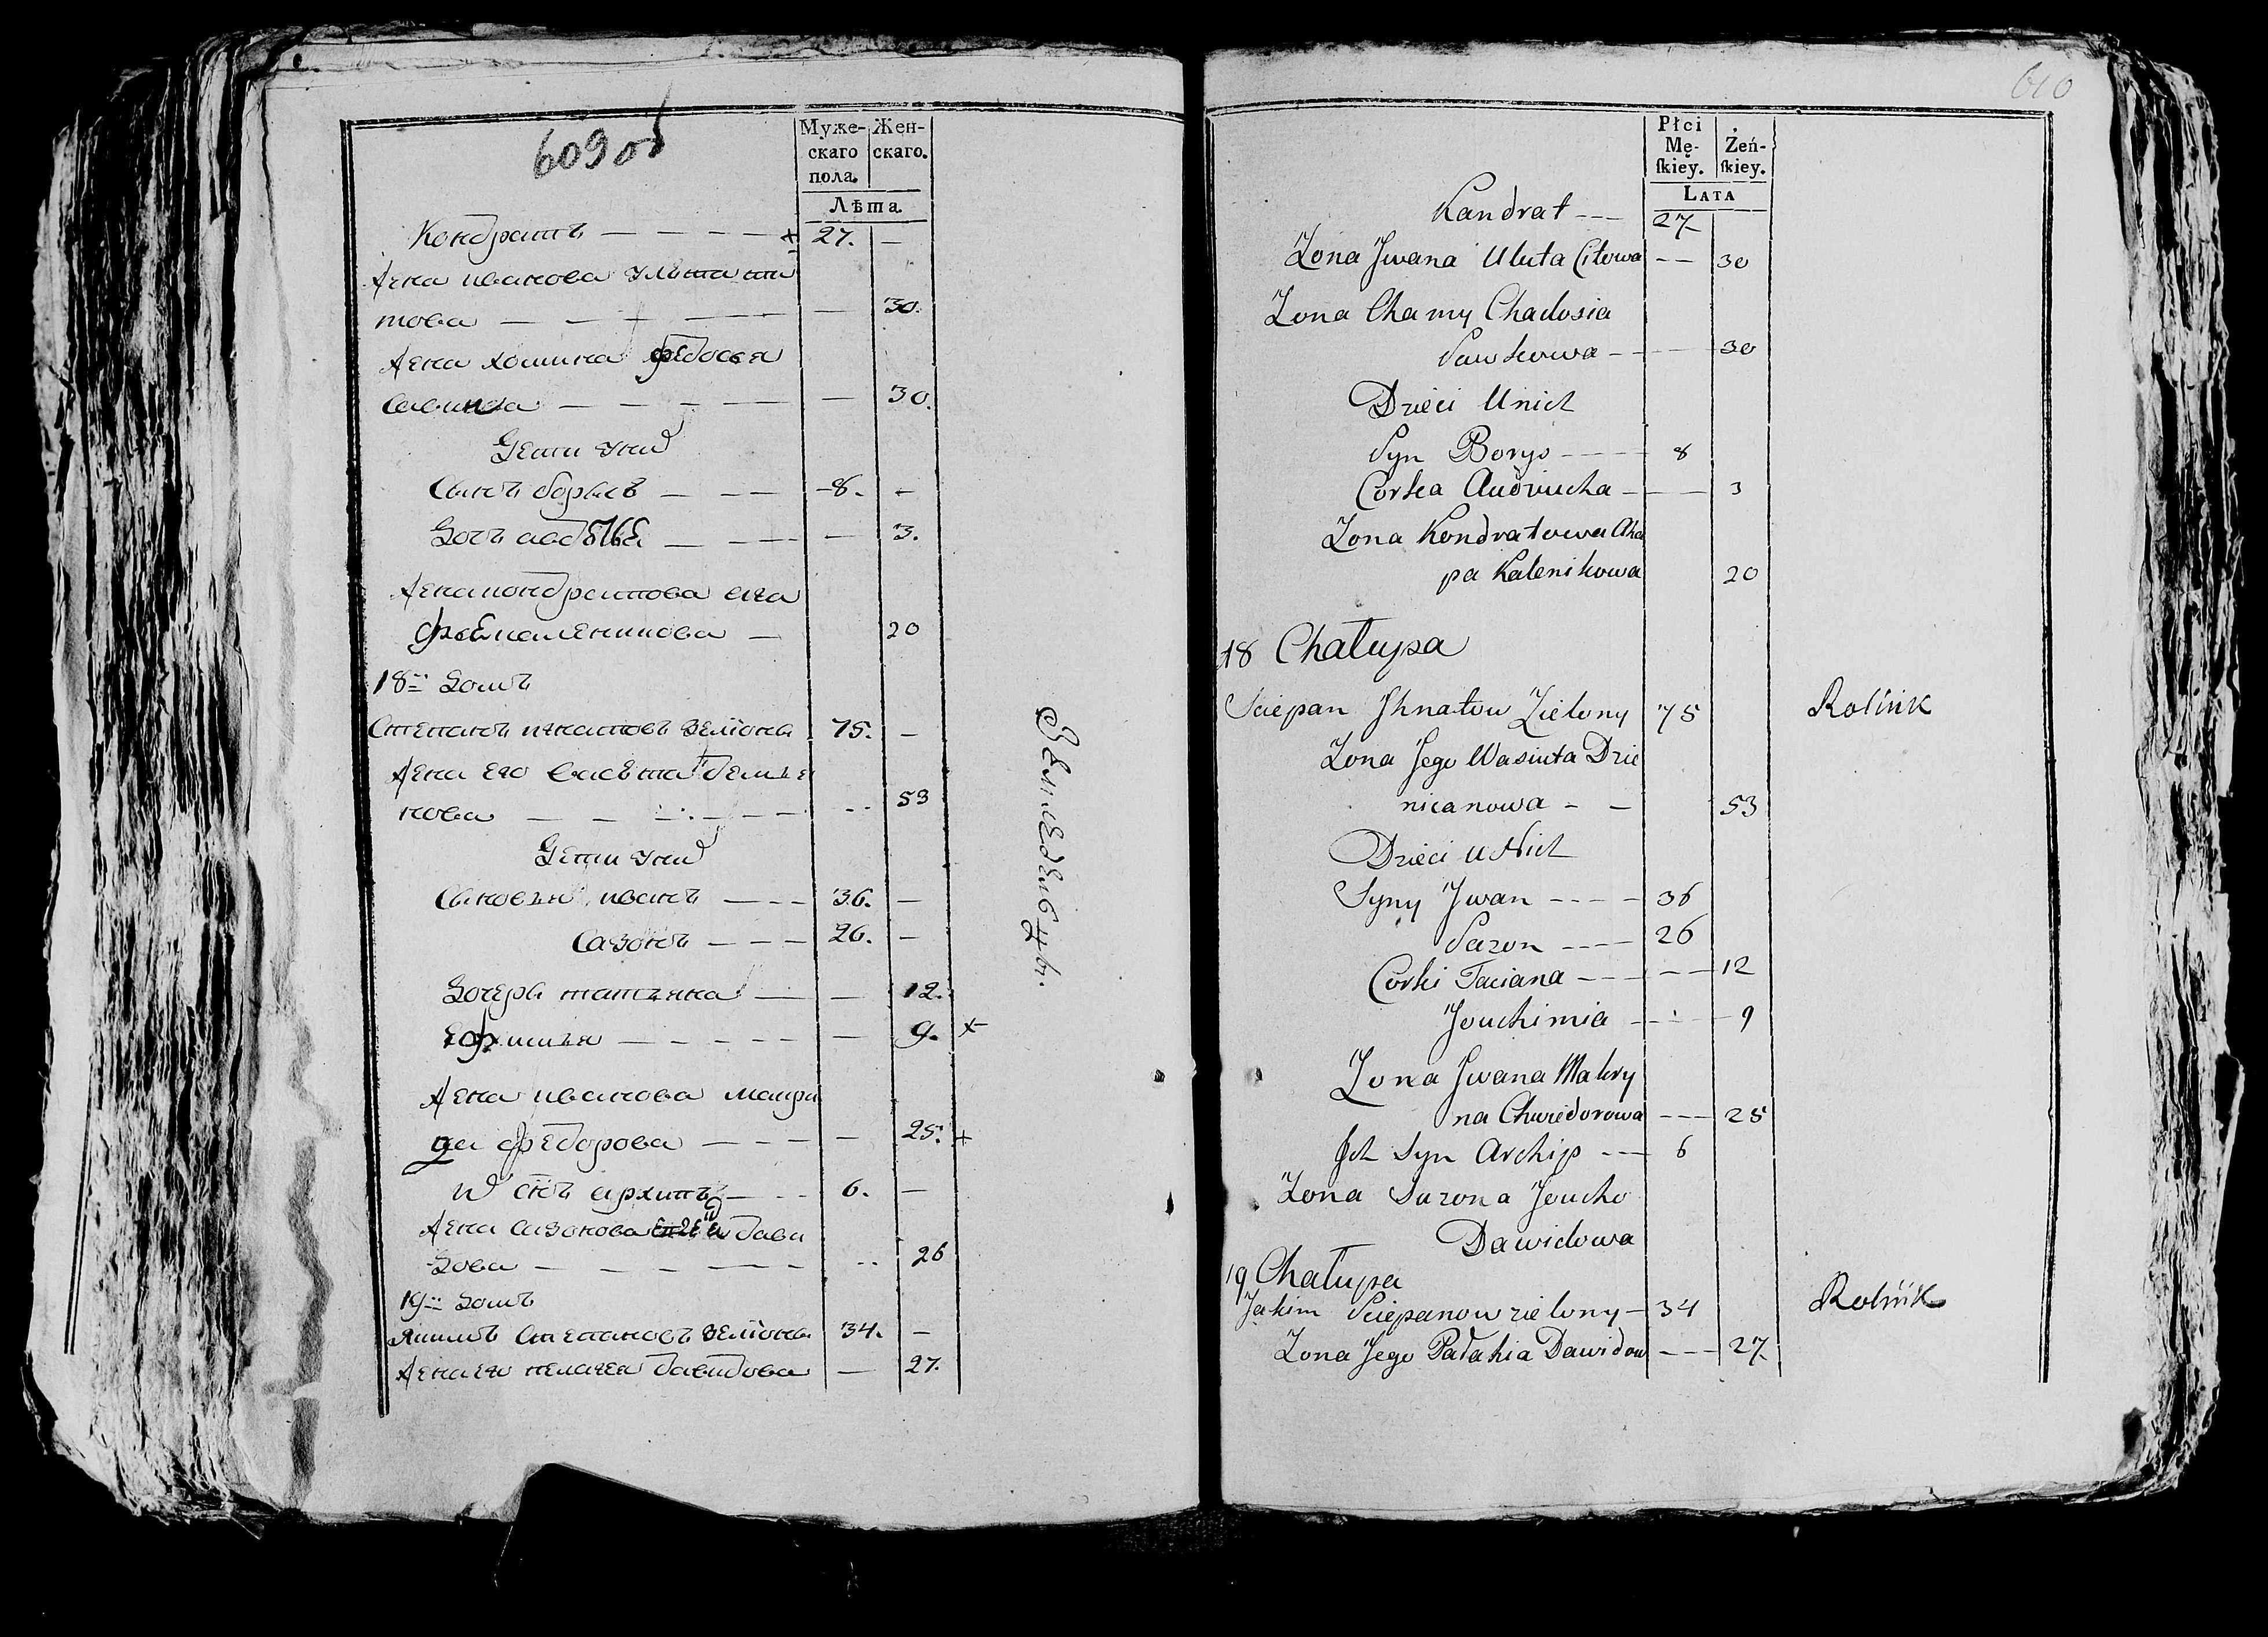 609 об
Муже-
скаго
пола.
Жен-
скаго.
Лѣта
Кондратъ 27. —
Жена иванова улита ти
това — 30.
Жена хомина федосея
савина — 30.
Дети у них
Сынъ борысъ 8. —
Дочь авдотья — 3.
Жена кондратова ага
фея каленикова — 20
18й Домъ
Степанъ игнатовъ зелiоны 75. —
Жена его васюта демья
нова 53
Дети у них
Сыновья иванъ 36. —
Сазонъ 26. —
Дочерь татьяна — 12.
Ефимья — 9. +
Жена иванова макри
на федорова — 25. +
их сынъ архипъ 6. —
Жена сазонова дави
дова 26
19й Домъ
Якимъ Степановъ зелiоны 34. —
Жена его пелагея давидова — 27.
Земледельцы.
610
Płci
Mę-
ſkiey.
Żeń-
ſkiey.
LATA
Kandrat 27
Zona Jwana Uluta Citowa 30
Zona Chamy Chadosia
Sawkowa 30
Dzieci U nich
Syn Borys 8
Corka Audziucha 3
Zona Kondratowa Aha
pa Kalenikowa 20
18 Chałupa
Sciepan Jhnatow Zielony 75 Rolnik
Zona Jego Wasiuta Dzie
nicanowa 53
Dzieci u Nich
Syny Jwan 36
Sazon 26
Corki Taciana 12
Jouchimia 9
Zona Jwana Makry
na Chwiedorowa 25
Jch Syn Archip 6
Zona Sazona Joucho
Dawidowa
19 Chałupa
Jakim Sciepanow zielony 34 Rolnik
Zona Jego Pałahia Dawidow 27